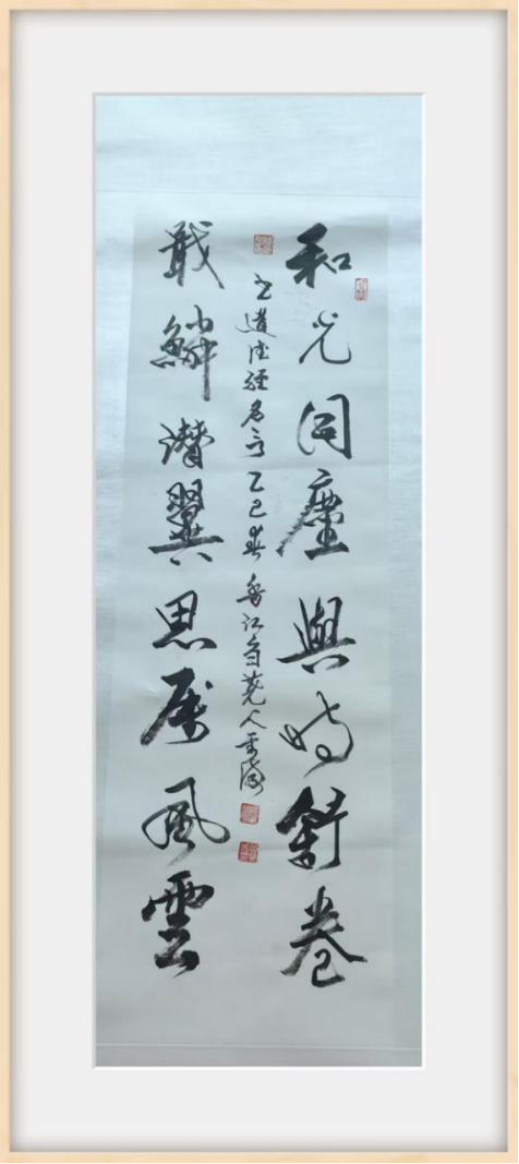 和光同塵與時舒卷
書道德經名言乙巳春香江
戢鱗潛翼思屬風雲